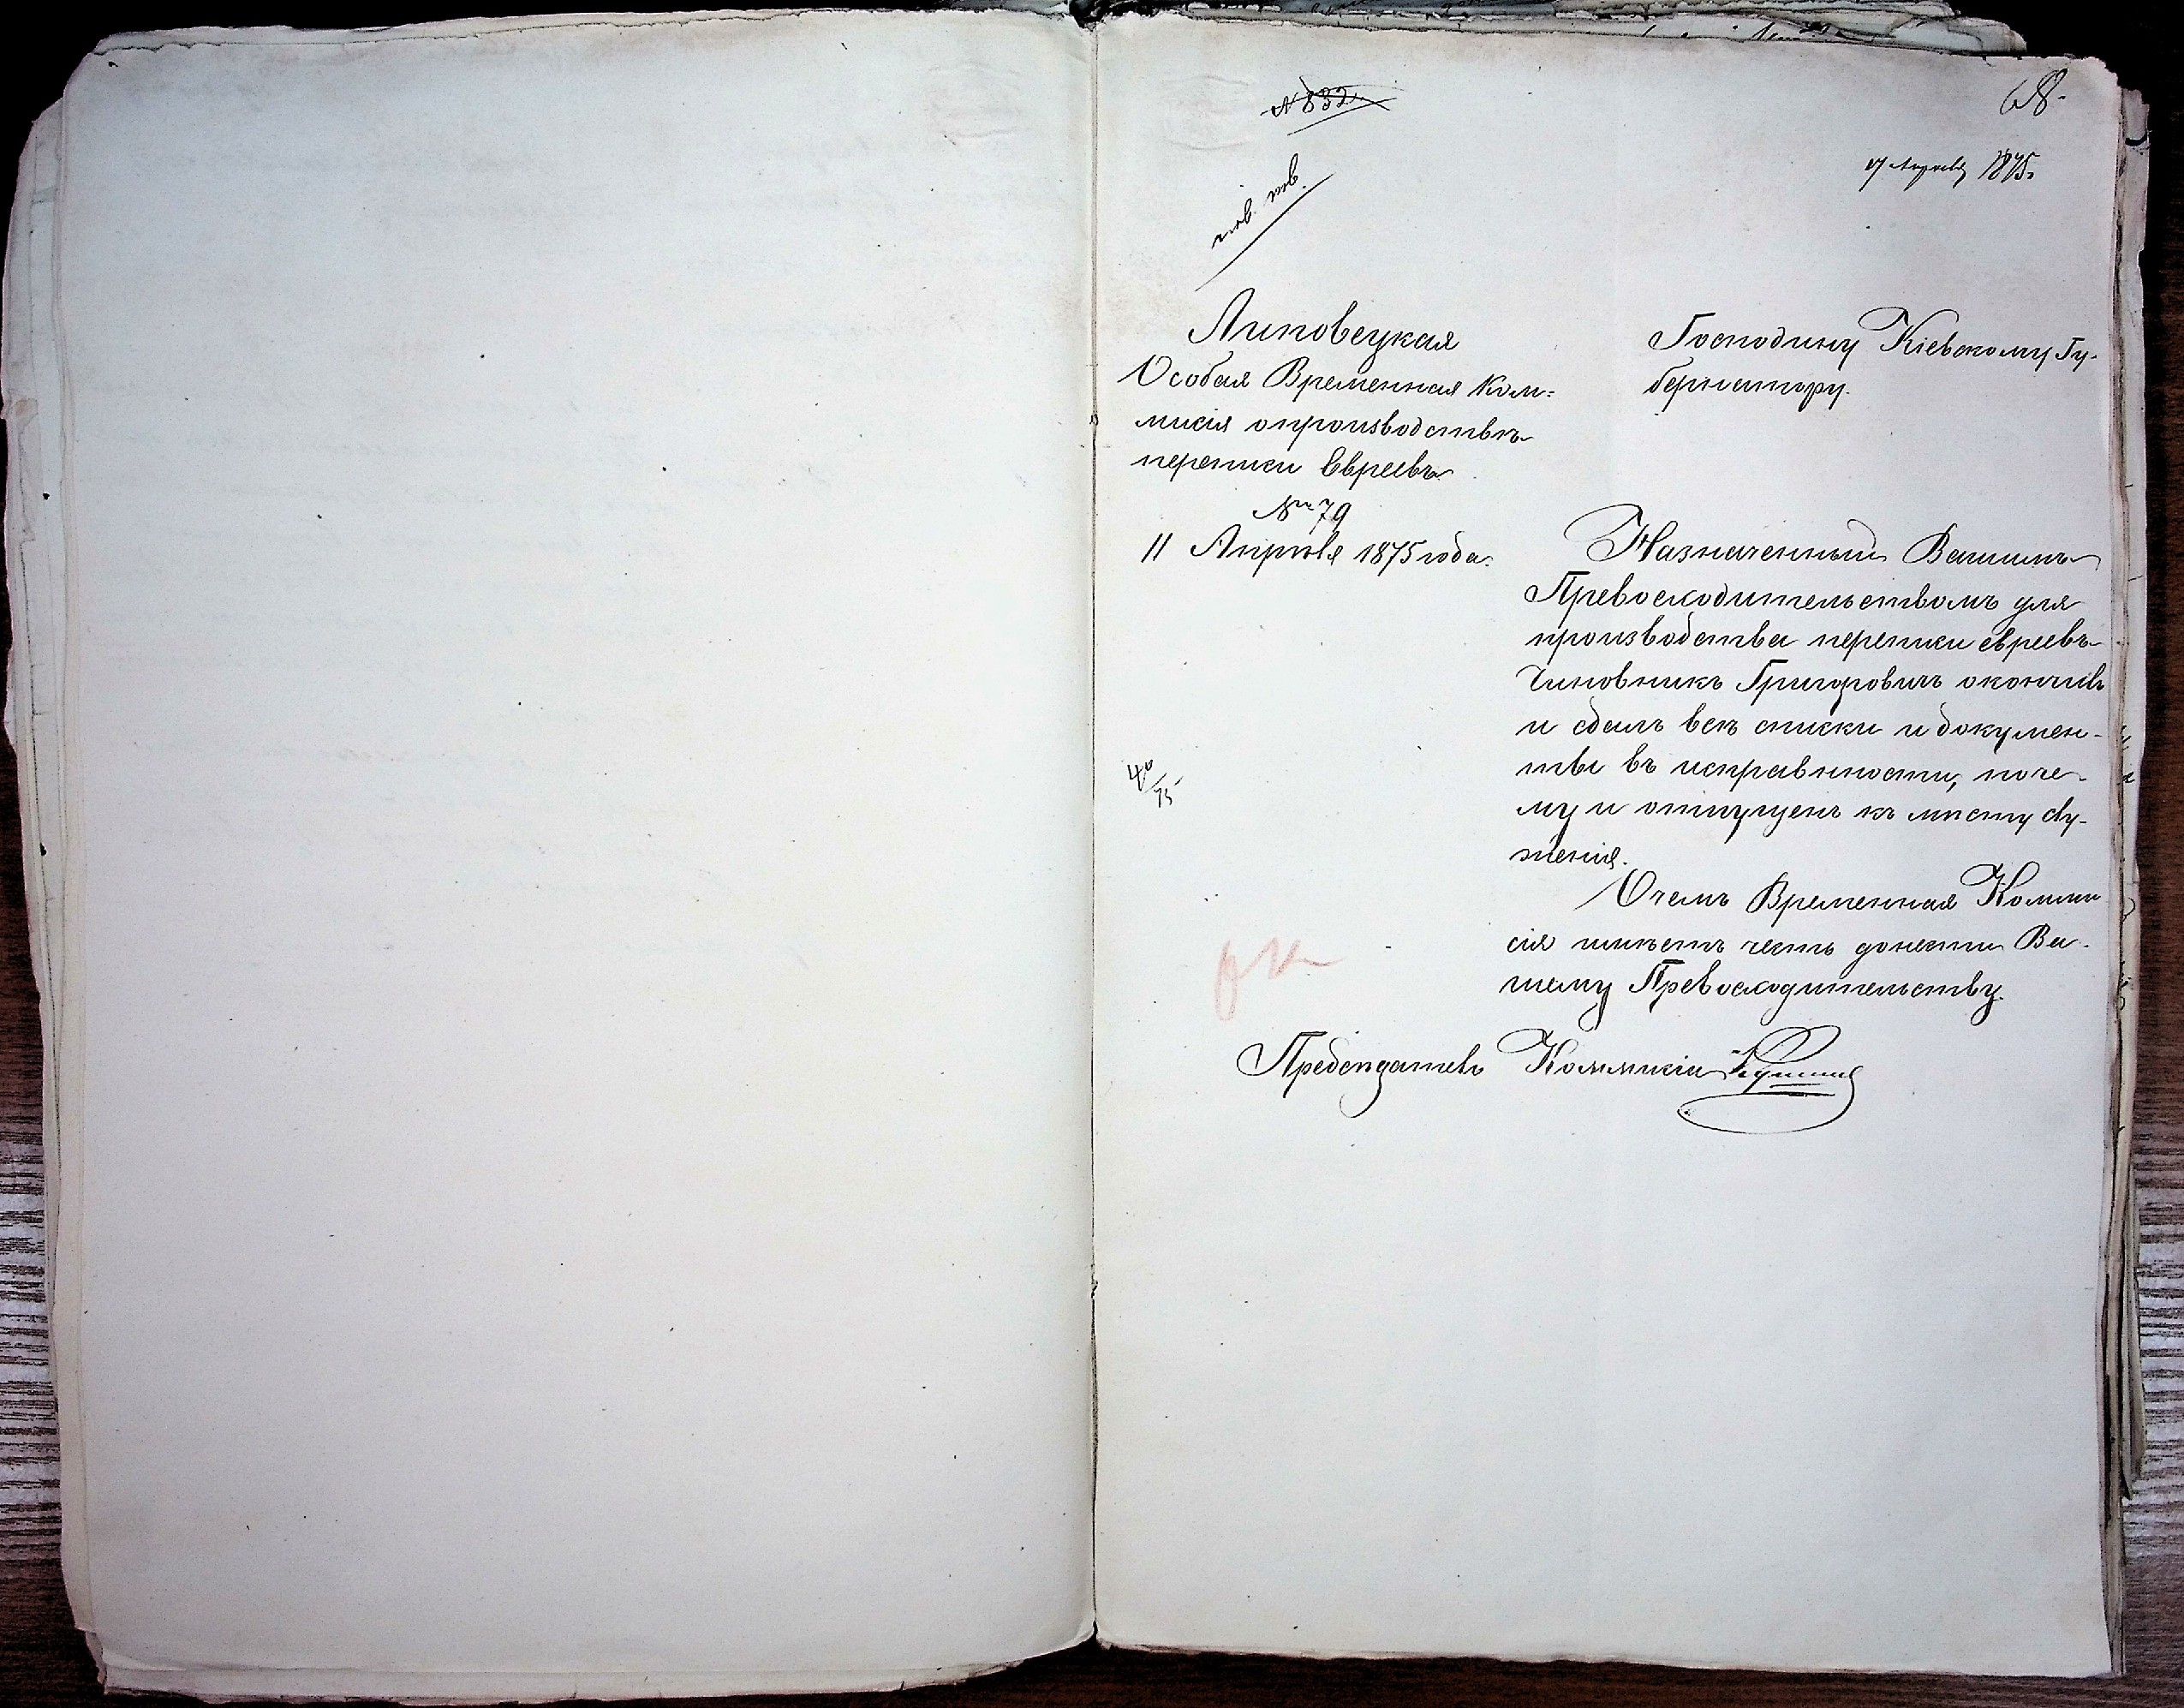 68.
№ 832
17 Апрѣля 1875 г.
Липовецкая
Особая Временная Ком=
мисія опроизводствѣ
переписи Евреевъ
№ 79
11 Апрѣля 1875 года.
Господину Кіевскому Гу-
бернатору.
Назначенный Вашимъ
Превосходительствомъ для
производства переписи евреевъ
Чиновникъ Григоровичъ окончилъ
и сдалъ всѣ списки и докумен-
ты въ исправности, поче-
му и отпущенъ къ мѣсту слу-
женія.
Очемъ Временная Комми
сія имѣетъ честь донести Ва-
шему Превосходительству.
40/75
Предсѣдатель Коммисіи